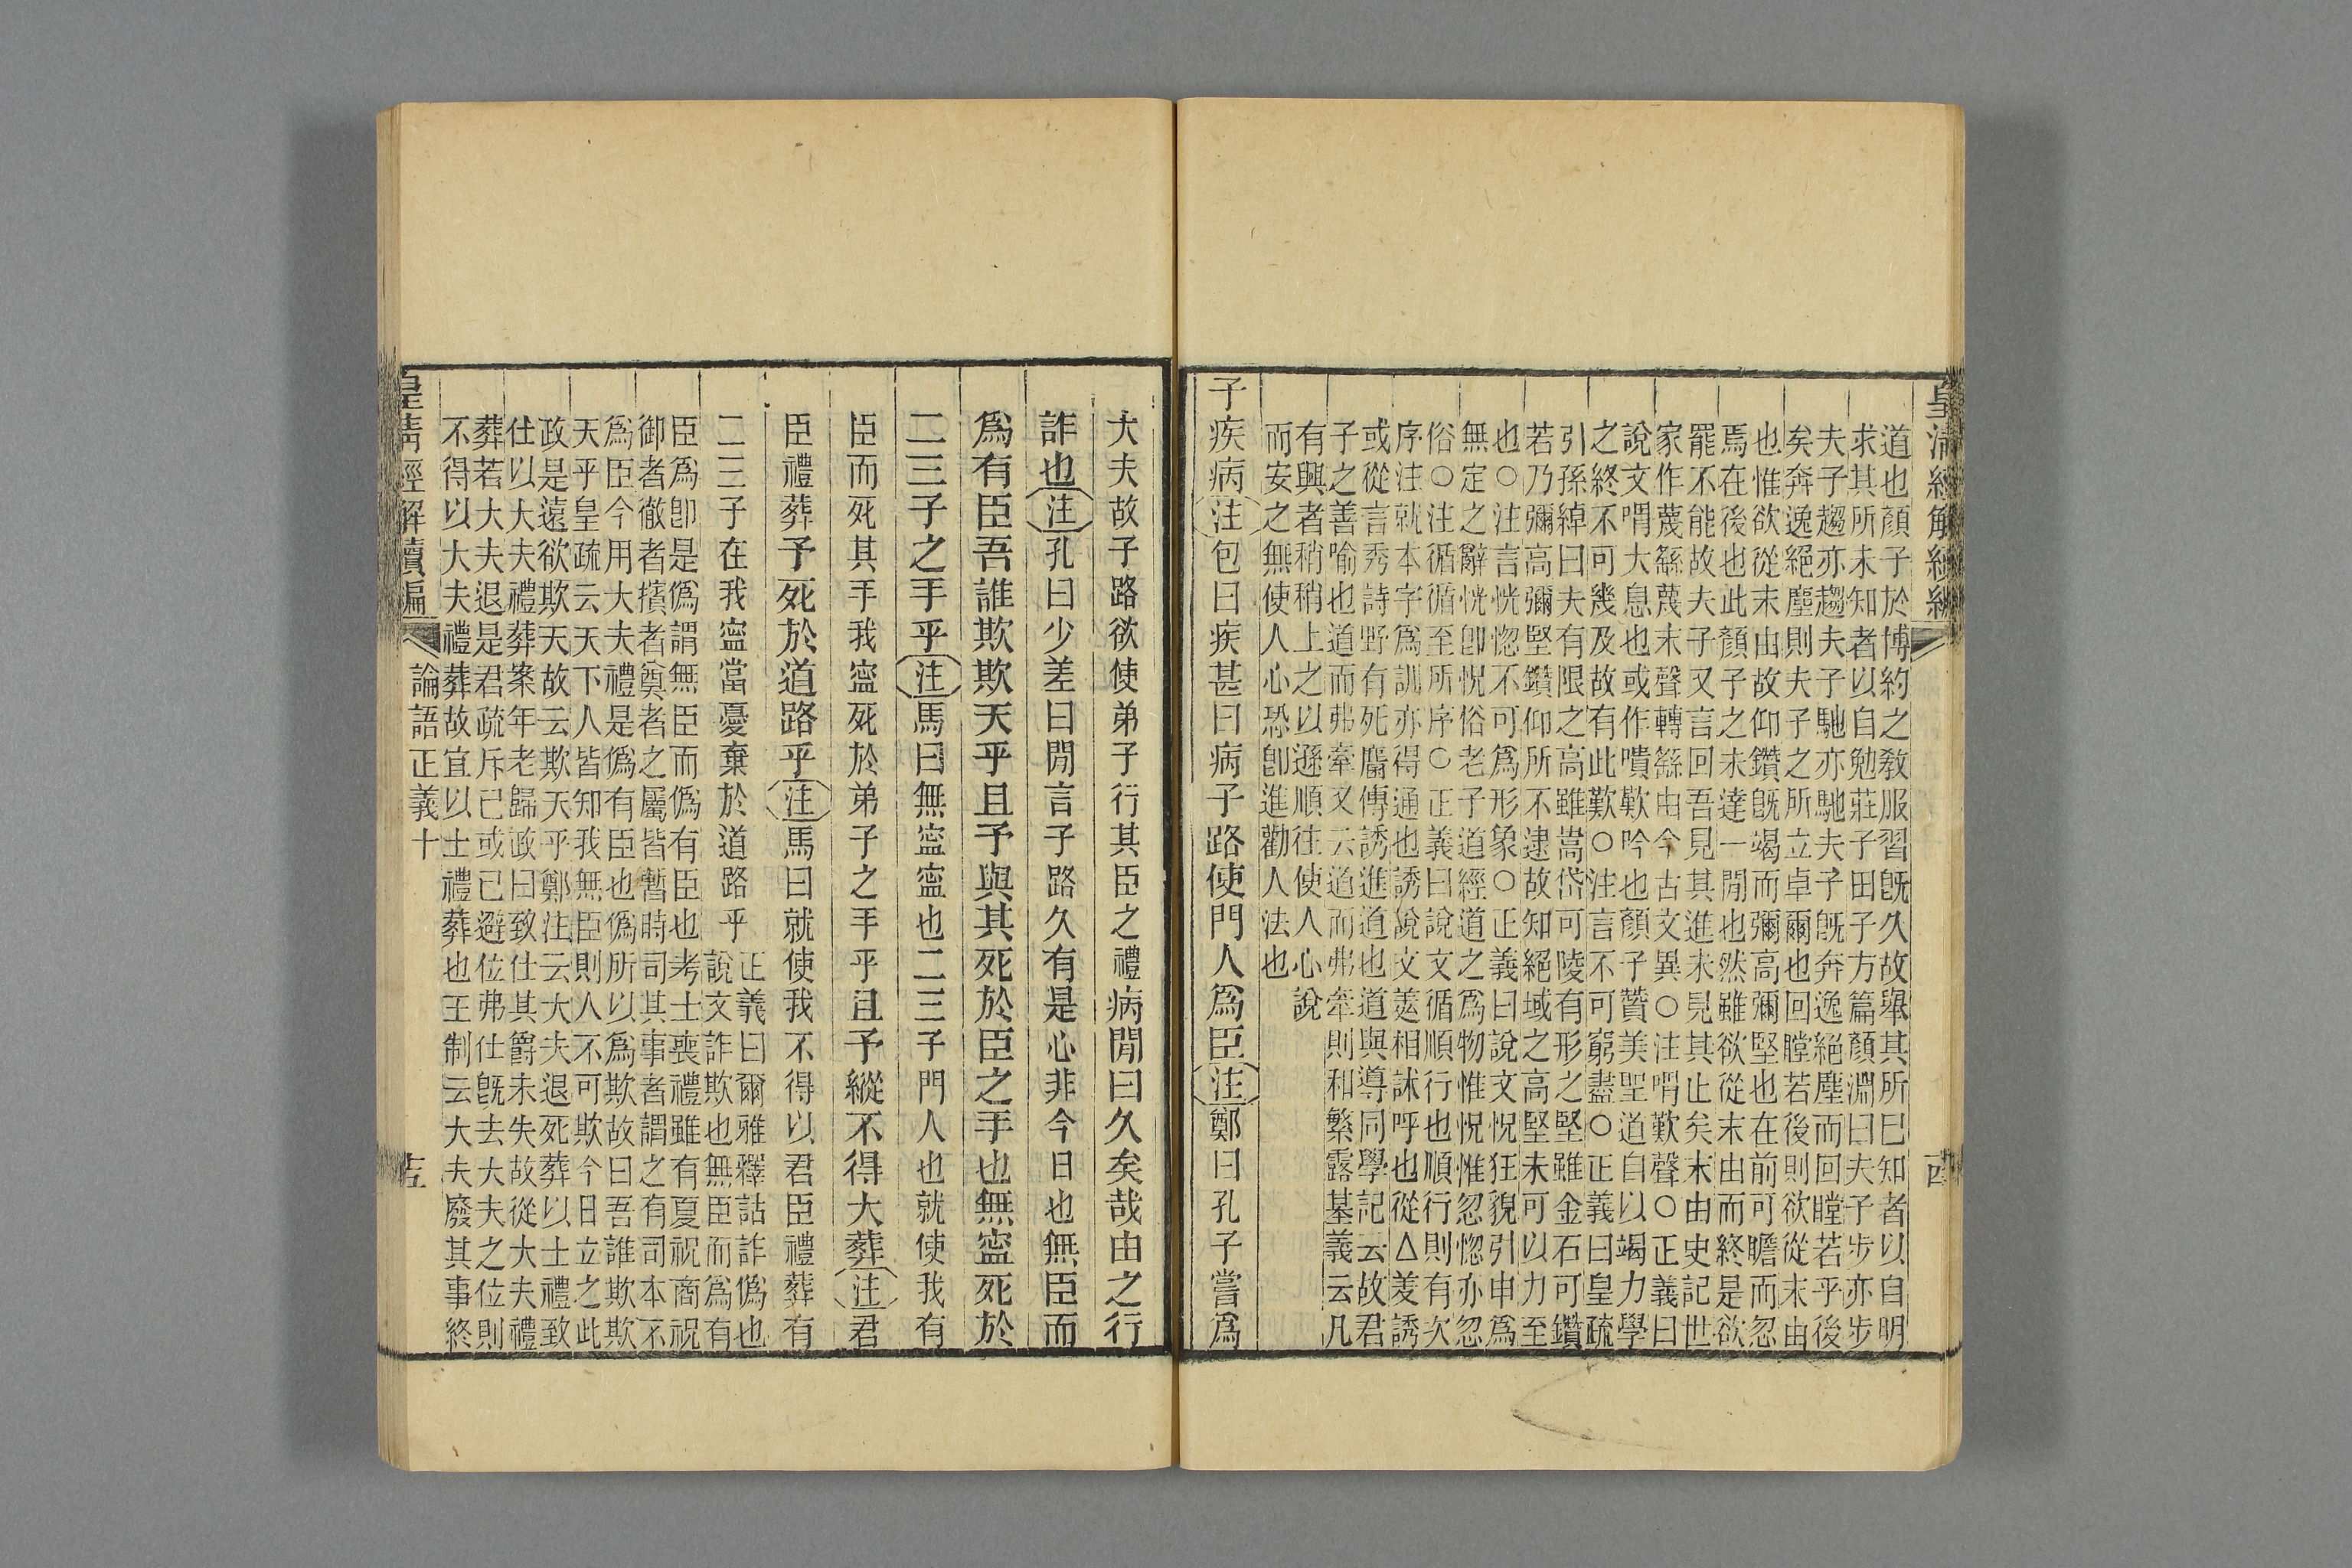 皇清經解續編
道也顏子於博約之教服習旣久故舉其所已知者以自明
求其所未知者以自勉莊子田子方篇顏淵曰夫子步亦步
夫子趨亦趨夫子馳亦馳夫子旣奔逸絕塵而回瞠若乎後
矣奔逸絕塵則夫子之所立卓爾也回瞠若後則欲從末由
也惟欲從末由故仰鑽旣竭而彌高彌堅也在前可瞻而忽
焉在後也此顏子之未達一閒也然雖欲從末由而終是欲
罷不能故夫子又言回吾見其進未見其止矣末由史記世
家作蔑繇蔑末聲轉繇由今古文異○注喟歎聲○正義曰
說文喟大息也或作嘳歎吟也顏子贊美聖道自以竭力學
之終不可幾及故有此歎○注言不可窮盡○正義曰皇疏
引孫綽曰夫有限之高雖嵩岱可陵有形之堅雖金石可鑽
若乃彌高彌堅鑽仰所不逮故知絕域之高堅未可以力至
也○注言恍惚不可爲形象○正義曰說文怳狂貌引申爲
無定之辭恍卽怳俗老子道經道之爲物惟怳惟忽惚亦忽
俗○注循循至所序○正義曰說文循順行也順行則有次
序注就本字爲訓亦得通也誘說文羑相訹呼也從厶羑誘
或從言秀詩野有死麕傳誘進道也道與導同學記云故君
子之善喻也道而弗牽又云道而弗牽則和繁露基義云凡
有興者稍稍上之以遜順往使人心說
而安之無使人心恐卽進勸人法也
子疾病注包曰疾甚曰病子路使門人爲臣注鄭曰孔子嘗爲
大夫故子路欲使弟子行其臣之禮病閒曰久矣哉由之行
詐也注孔曰少差曰閒言子路久有是心非今日也無臣而
爲有臣吾誰欺欺天乎且予與其死於臣之手也無寧死於
二三子之手乎注馬曰無寧寧也二三子門人也就使我有
臣而死其手我寧死於弟子之手乎且予縱不得大葬注君
臣禮葬予死於道路乎注馬曰就使我不得以君臣禮葬有
二三子在我寧當憂棄於道路乎
正義曰爾雅釋詁詐僞也
說文詐欺也無臣而爲有
臣爲卽是僞謂無臣而僞有臣也考士喪禮雖有夏祝商祝
御者徹者擯者奠者之屬皆暫時司其事者謂之有司本不
爲臣今用大夫禮是僞有臣也僞所以爲欺故曰吾誰欺欺
天乎皇疏云天下人皆知我無臣則人不可欺今日立之此
政是遠欲欺天故云欺天乎鄭注云大夫退死葬以士禮致
仕以大夫禮葬案年老歸政曰致仕其爵未失故從大夫禮
葬若大夫退是君疏斥己或己避位弗仕旣去大夫之位則
不得以大夫禮葬故宜以士禮葬也王制云大夫廢其事終
皇清經解續編 論語正義十